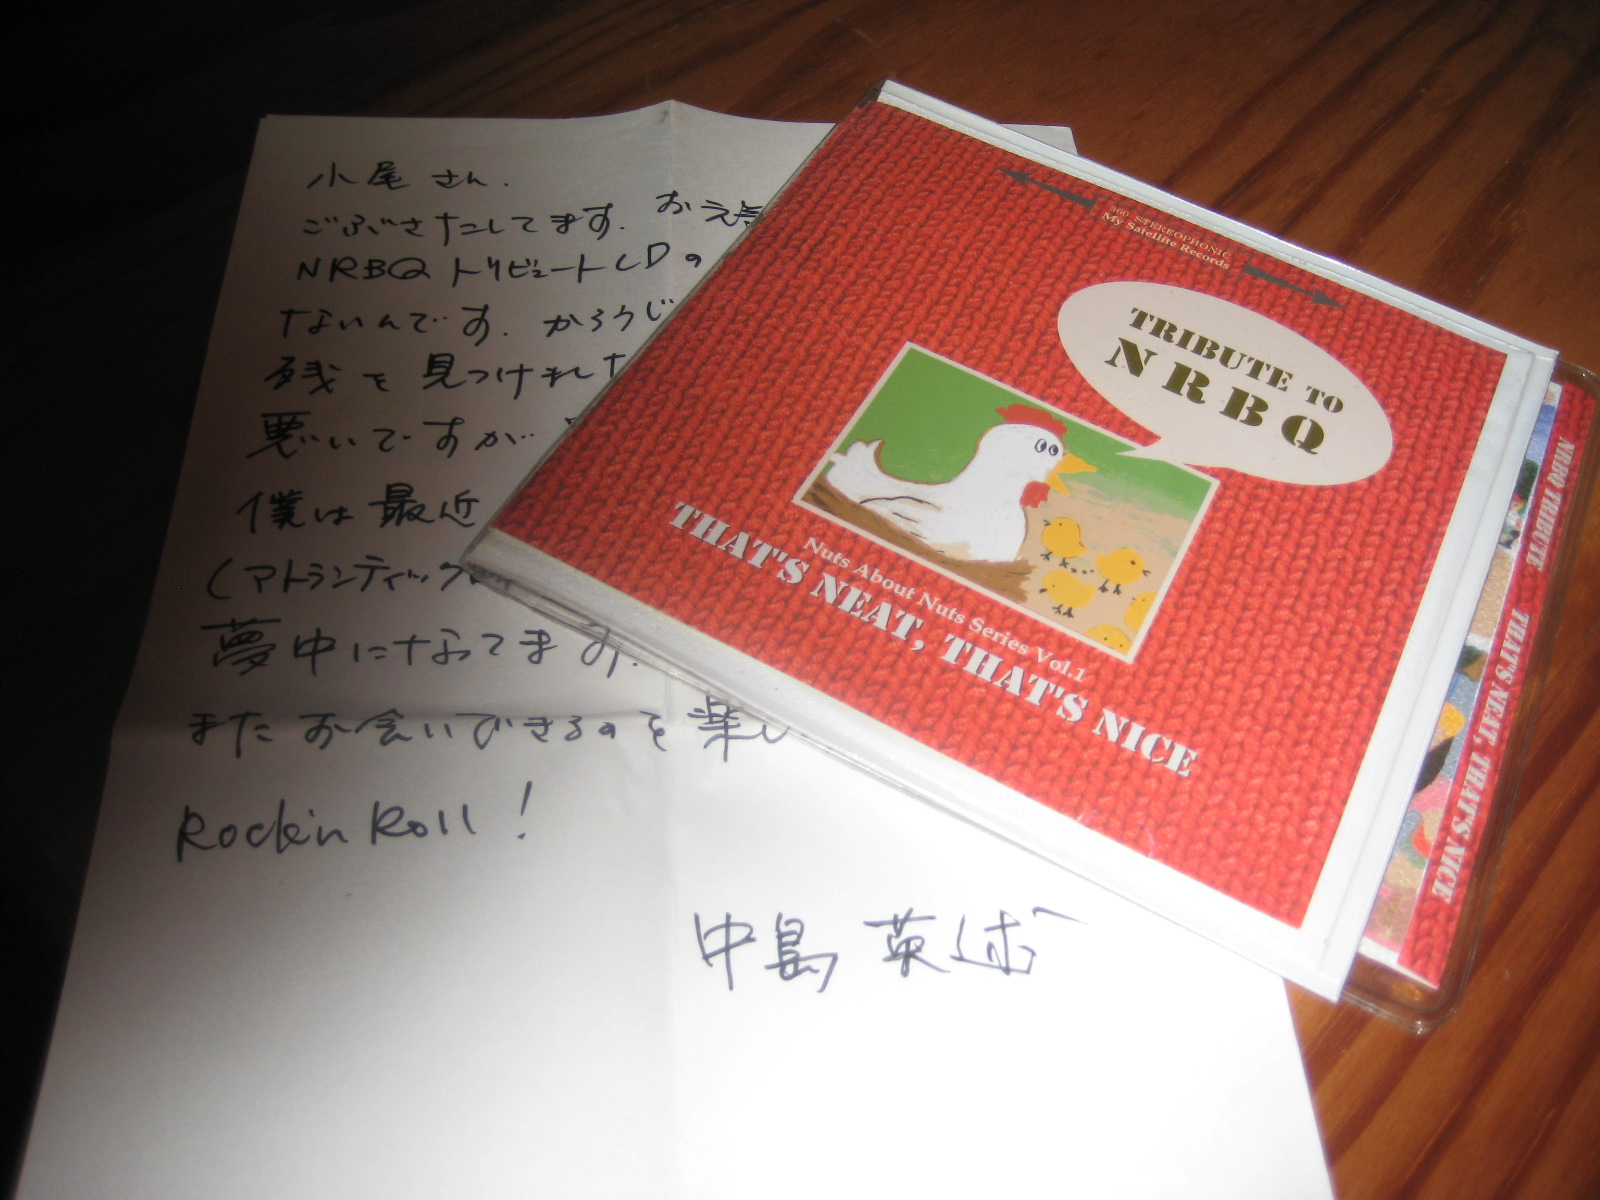 小尾さん.
ごぶさたしてます. お元気
NRBQ トリビュートCDの
ないんです. かろうじ
残を見つけました
悪いですが
僕は最近
(アトランティック
夢中になってます.
またお会いできるのを楽し
Rock'n Roll!
中島 英述
360 STEREOPHONIC
My Satellite Records
TRIBUTE TO
NRBQ
Nuts About Nuts Series Vol.1
THAT'S NEAT, THAT'S NICE
NRBQ TRIBUTE THAT'S NEAT, THAT'S NICE